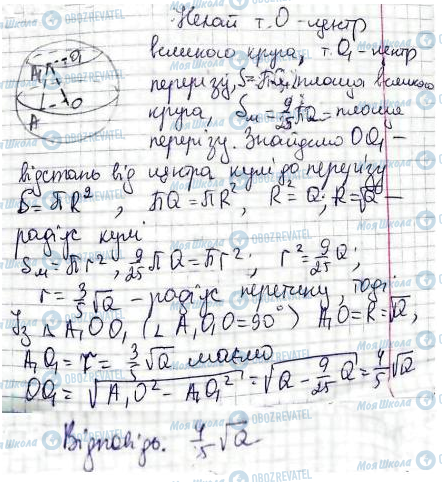 Нехай т. O - центр
великого круга, т. O₁ - центр
перерізу, S = ПQ - площа великого
круга, Sм = 9/25 ПQ = площа
перерізу. Знайдемо OO₁ -
відстань від центра кулі до перерізу
S = ПR², ПQ = ПR², R² = Q; R = √Q -
радіус кулі
Sм = Пr², 9/25 ПQ = Пr², r² = 9/25 Q;
r = 3/5 √Q - радіус перетину, тоді
Із △ A₁OO₁ (∠A₁O₁O = 90°) A₁O = R = √Q,
A₁O₁ = r = 3/5 √Q маємо
OO₁ = √(A₁O² - A₁O₁²) = √(Q - 9/25 Q) = 4/5 √Q
Відповідь. 4/5 √Q
A₁
O₁
O
A